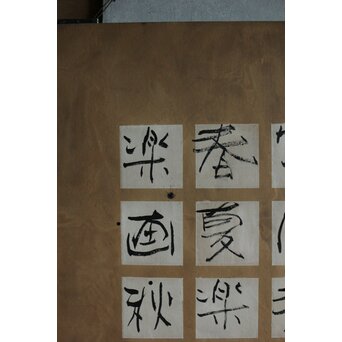 春夏楽
楽画秋